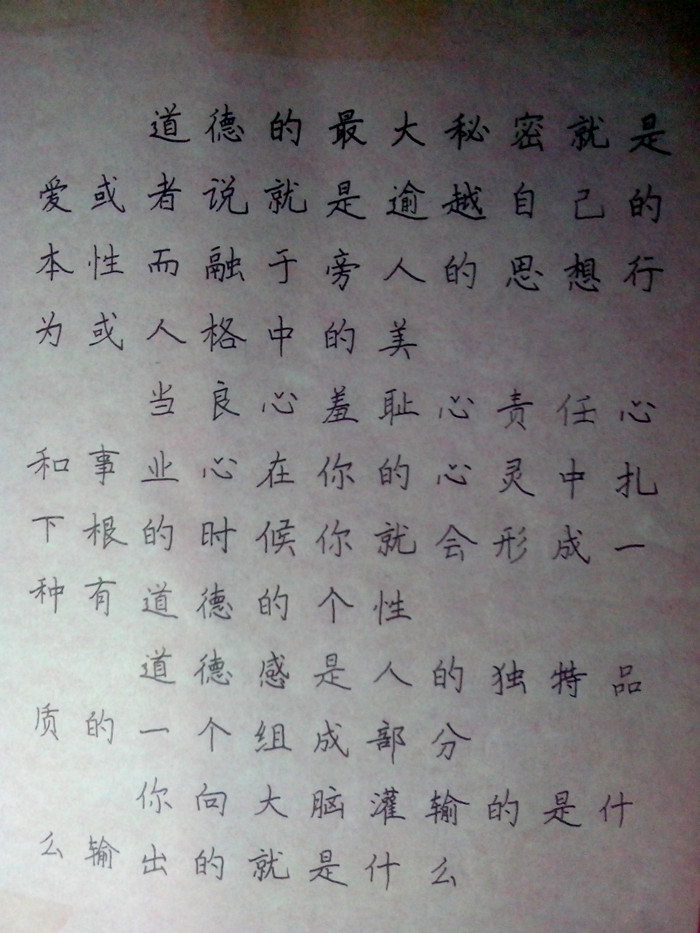 道德的最大秘密就是
爱或者说就是逾越自己的
本性而融于旁人的思想行
为或人格中的美
当良心羞耻心责任心
和事业心在你的心灵中扎
下根的时候你就会形成一
种有道德的个性
道德感是人的独特品
质的一个组成部分
你向大脑灌输的是什
么输出的就是什么